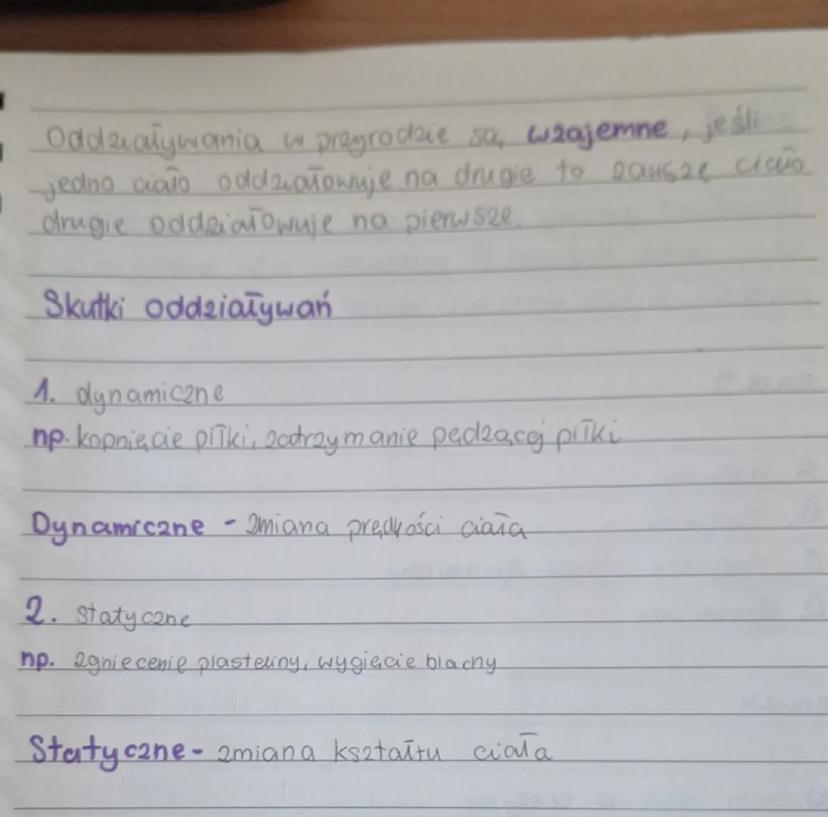 Oddziaływania w przyrodzie są wzajemne, jeśli
jedno ciało oddziałowuje na drugie to zawsze ciało
drugie oddziałowuje na pierwsze.
Skutki oddziaływań
1. dynamiczne
np. kopnięcie piłki, zatrzymanie pędzącej piłki
Dynamiczne - zmiana prędkości ciała
2. statyczne
np. zgniecenie plasteliny, wygięcie blachy
Statyczne - zmiana kształtu ciała